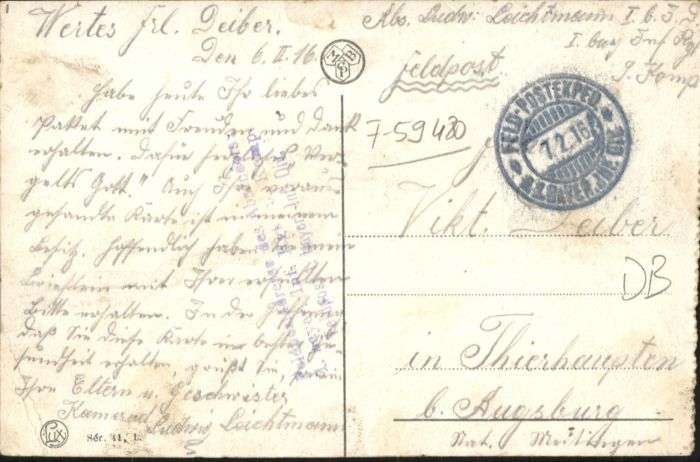 Wertes Frl. Deiber.
Den 6. II. 16
Habe heute Ihr liebes
Paket mit Freuden und Dank
erhalten. Dafür herzliches Ver-
gelts Gott!" Auch Ihre voraus-
gesandte Karte ist in meinem
Besitz. Hoffendlich haben Sie mein
Brieflein mit Ihrer erfüllten
Bitte erhalten. In der Hoffnung
daß Sie diese Karte in bester Ge-
sundheit erhalten, grüßt Sie,
Ihre Eltern u. Geschwister
Kamerad
Ludwig Leichtmann
Lux
Sér. 41,
Abs. Ludw. Leichtmann I. b. I.
I. bay Inf Rg
Feldpost
7. Komp
7-59480
FELD-POSTEXPED.
7.2.16
Vikt. Deiber
DB
in Thierhaupten
b. Augsburg